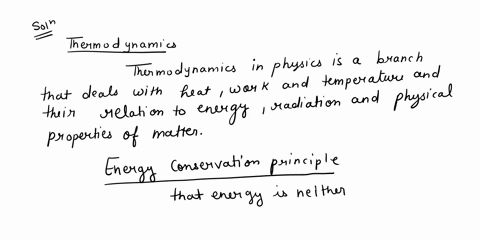 Solⁿ
Thermodynamics
Thermodynamics in physics is a branch
that deals with heat, work and temperature and
their relation to energy, radiation and physical
properties of matter.
Energy conservation principle
that energy is neither